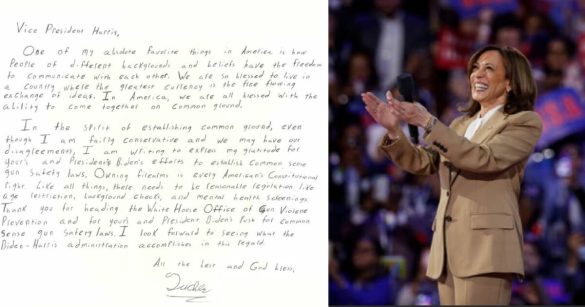 Vice President Harris,
One of my absolute favorite things in America is how
People of different backgrounds and beliefs have the freedom
to communicate with each other. We are so blessed to live in
a country where the greatest currency is the free flowing
exchange of ideas. In America, we are all blessed with the
ability to come together on common ground.
In the spirit of establishing common ground, even
though I am fairly conservative and we may have our
disagreements, I am writing to explain my gratitude for
yours and President Biden's efforts to establish common sense
gun safety laws. Owning firearms is every American's Constitutional
right. Like all things, there needs to be reasonable regulation like
age restriction, background checks, and mental health screenings.
Thank you for heading the White House Office of Gun Violence
Prevention and for yours and President Biden's Push for common
sense gun safety laws. I look forward to seeing what the
Biden-Harris administration accomplishes in this regard.
All the best and God bless,